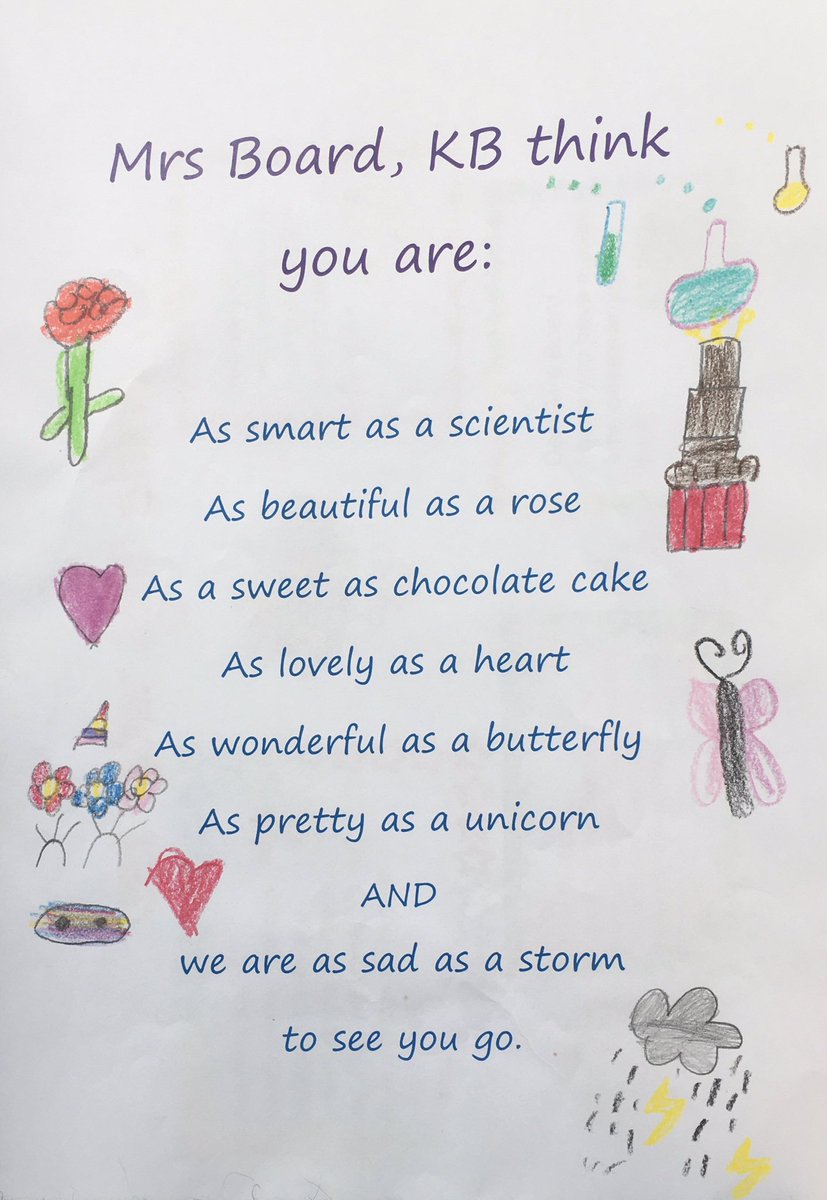 Mrs Board, KB think
you are:
As smart as a scientist
As beautiful as a rose
As a sweet as chocolate cake
As lovely as a heart
As wonderful as a butterfly
As pretty as a unicorn
AND
we are as sad as a storm
to see you go.